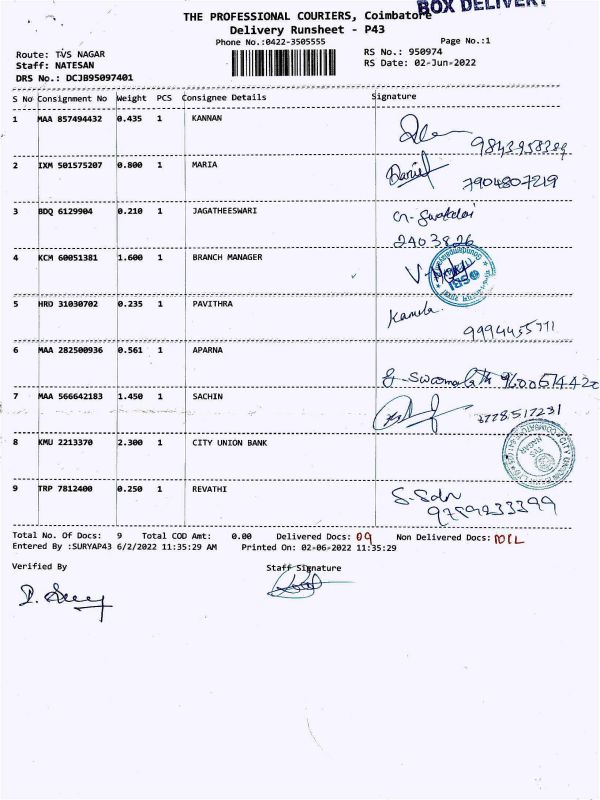 BOX DELIVERY
THE PROFESSIONAL COURIERS, Coimbatore
Delivery Runsheet - P43
Phone No.:0422-3505555 Page No.:1
Route: TVS NAGAR RS No.: 950974
Staff: NATESAN RS Date: 02-Jun-2022
DRS No.: DCJB95097401
S No Consignment No Weight PCS Consignee Details Signature
1 MAA 857494432 0.435 1 KANNAN
9843958389
2 IXM 501575207 0.800 1 MARIA Daniel
7904807219
3 BDQ 6129904 0.210 1 JAGATHEESWARI
2403826
4 KCM 60051381 1.600 1 BRANCH MANAGER
SBI
5 HRD 31030702 0.235 1 PAVITHRA Kamila
9994455711
6 MAA 282500936 0.561 1 APARNA
7 MAA 566642183 1.450 1 SACHIN
8 KMU 2213370 2.300 1 CITY UNION BANK
TVS
NAGAR
9 TRP 7812400 0.250 1 REVATHI
9789233399
Total No. Of Docs: 9 Total COD Amt: 0.00 Delivered Docs: 09 Non Delivered Docs: NIL
Entered By :SURYAP43 6/2/2022 11:35:29 AM Printed On: 02-06-2022 11:35:29
Verified By Staff Signature